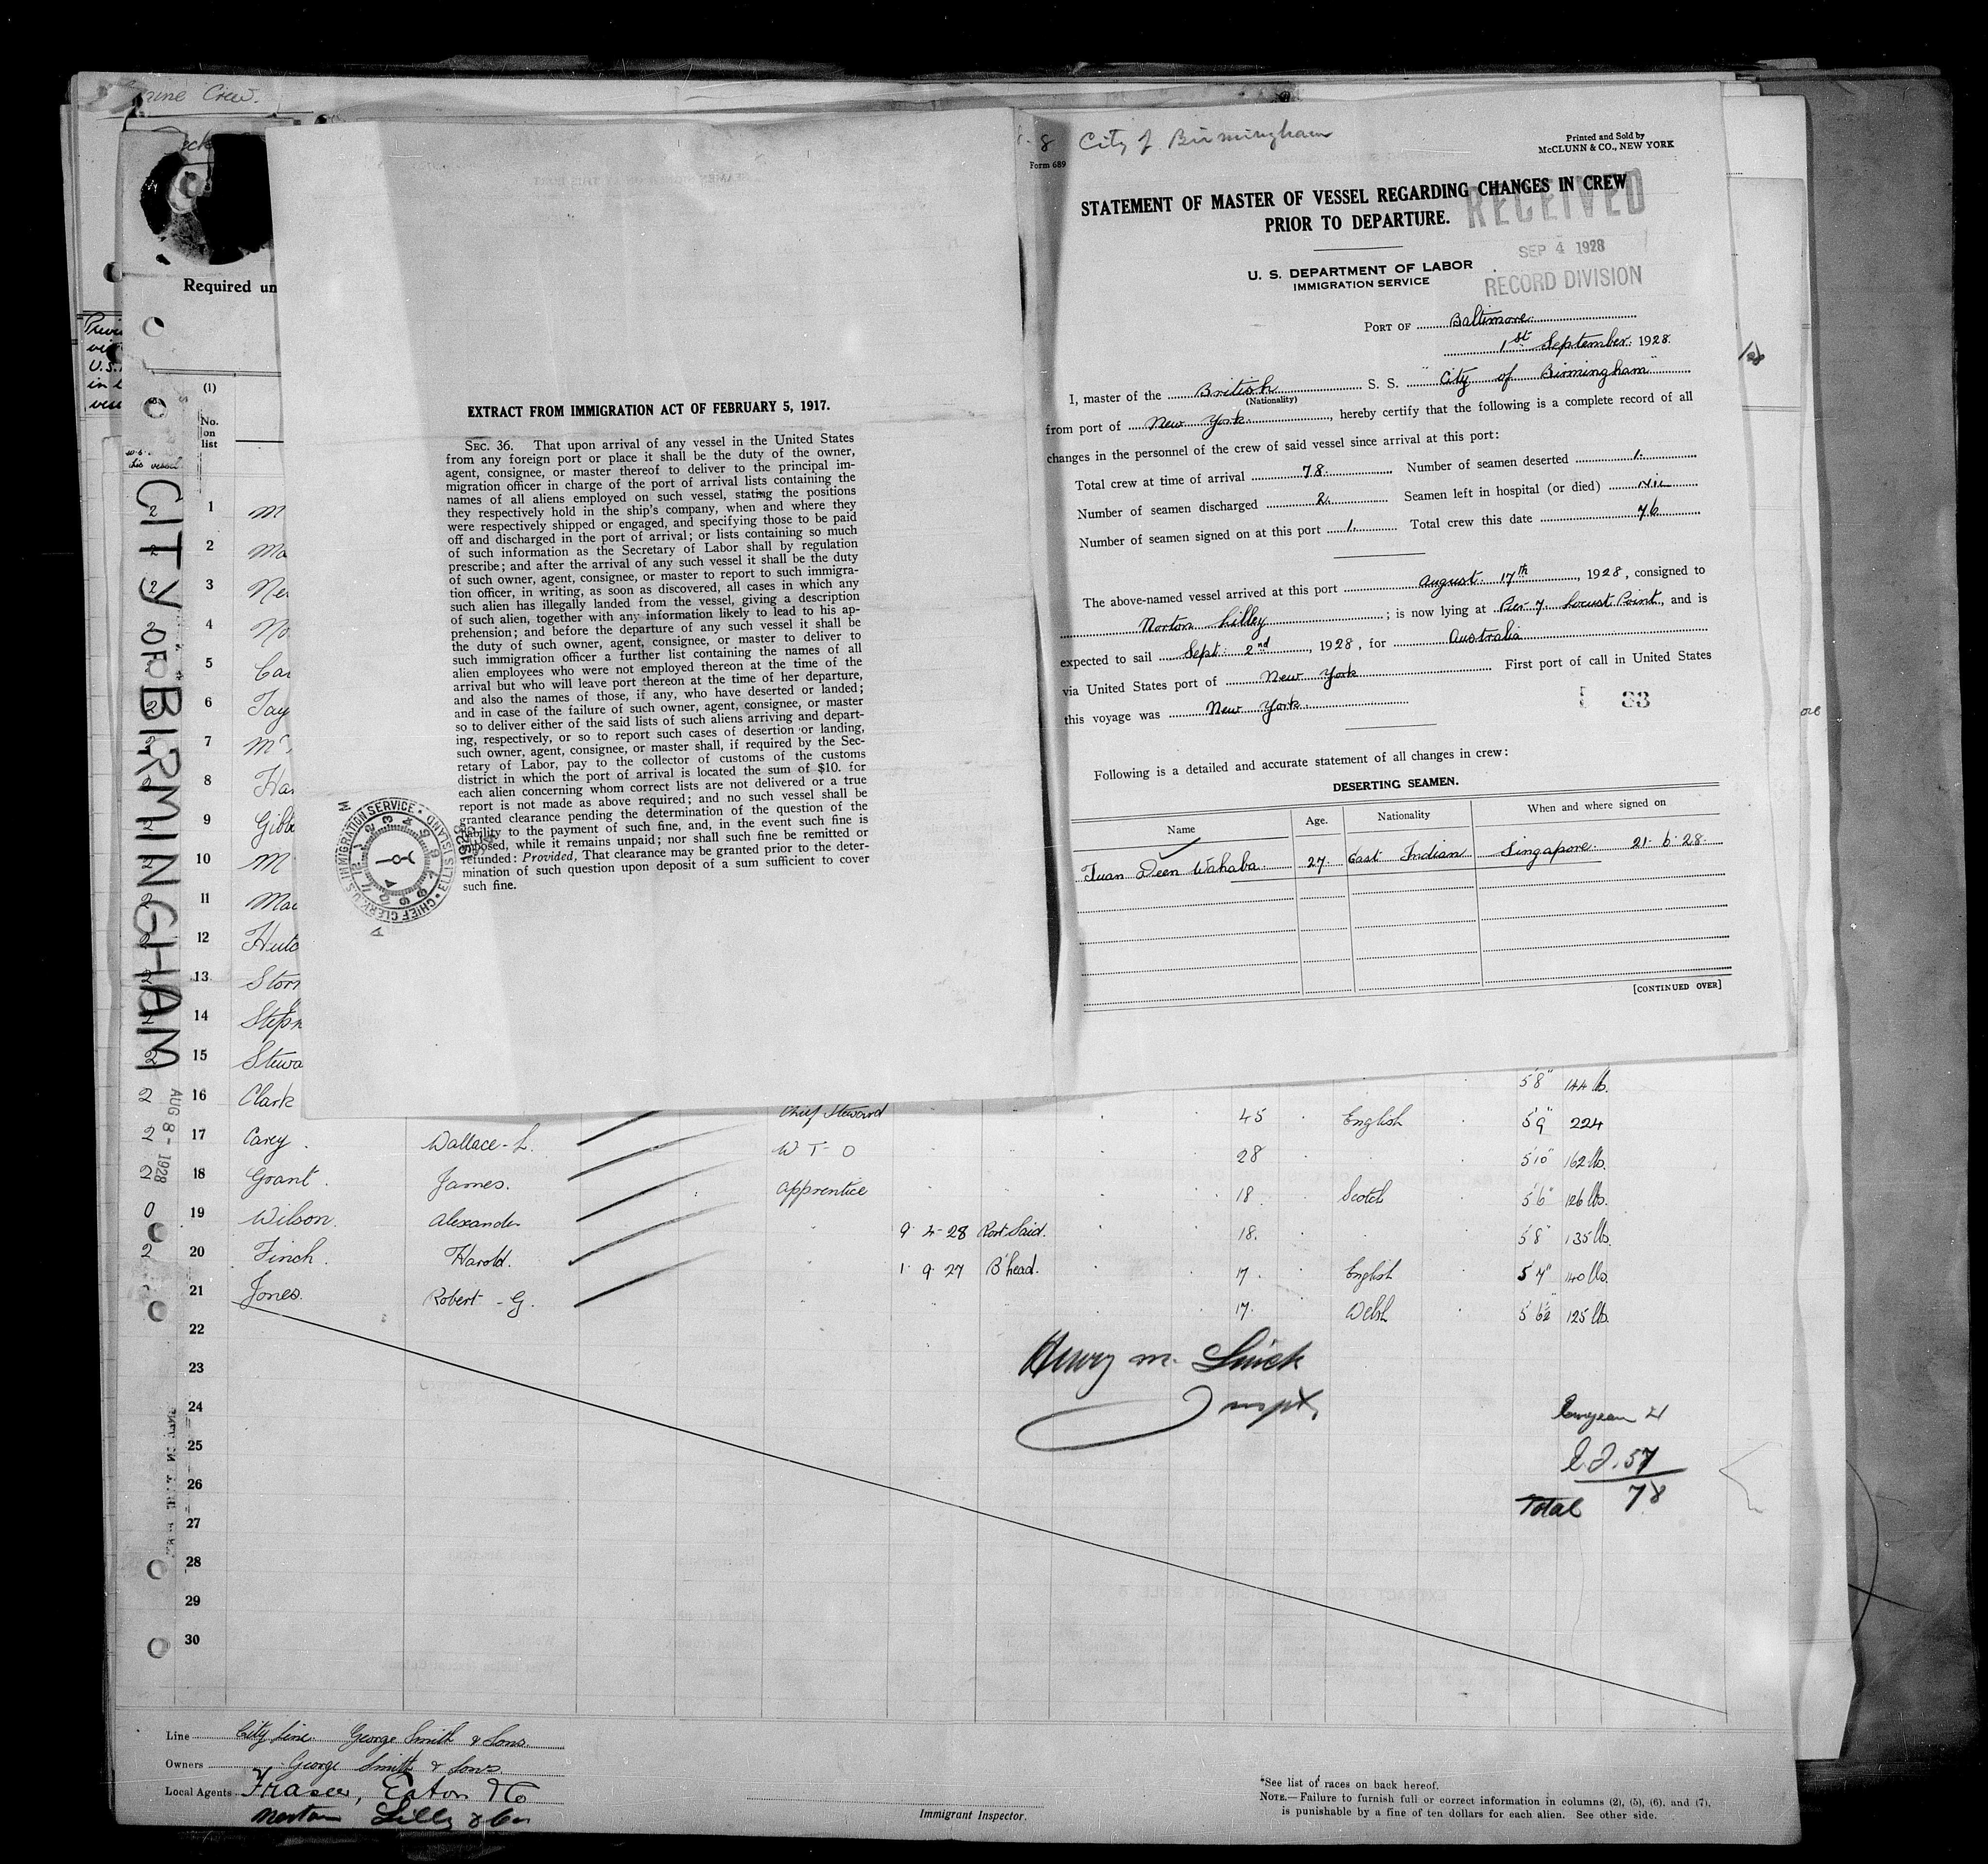 Crew.
City of Birmingham
Form 689
Printed and Sold by
McCLUNN & CO., NEW YORK
STATEMENT OF MASTER OF VESSEL REGARDING CHANGES IN CREW
PRIOR TO DEPARTURE.
RECEIVED
SEP 4 1928
RECORD DIVISION
U. S. DEPARTMENT OF LABOR
IMMIGRATION SERVICE
PORT OF Baltimore
1st September 1928.
I, master of the British S. S. "City of Birmingham"
(Nationality)
from port of New York, hereby certify that the following is a complete record of all
changes in the personnel of the crew of said vessel since arrival at this port:
Total crew at time of arrival 78. Number of seamen deserted 1.
Number of seamen discharged 2. Seamen left in hospital (or died) Nil
Number of seamen signed on at this port 1. Total crew this date 76
The above-named vessel arrived at this port August 17th, 1928, consigned to
Norton Lilley; is now lying at Pier 7 Locust Point, and is
expected to sail Sept: 2nd, 1928, for Australia
via United States port of New York First port of call in United States
this voyage was New York.
Following is a detailed and accurate statement of all changes in crew:
DESERTING SEAMEN.
Name Age. Nationality When and where signed on
Tuan Deen Wahaba. 27. East Indian Singapore. 21-6-28.
[CONTINUED OVER]
EXTRACT FROM IMMIGRATION ACT OF FEBRUARY 5, 1917.
SEC. 36. That upon arrival of any vessel in the United States
from any foreign port or place it shall be the duty of the owner,
agent, consignee, or master thereof to deliver to the principal im-
migration officer in charge of the port of arrival lists containing the
names of all aliens employed on such vessel, stating the positions
they respectively hold in the ship's company, when and where they
were respectively shipped or engaged, and specifying those to be paid
off and discharged in the port of arrival; or lists containing so much
of such information as the Secretary of Labor shall by regulation
prescribe; and after the arrival of any such vessel it shall be the duty
of such owner, agent, consignee, or master to report to such immigra-
tion officer, in writing, as soon as discovered, all cases in which any
such alien has illegally landed from the vessel, giving a description
of such alien, together with any information likely to lead to his ap-
prehension; and before the departure of any such vessel it shall be
the duty of such owner, agent, consignee, or master to deliver to
such immigration officer a further list containing the names of all
alien employees who were not employed thereon at the time of the
arrival but who will leave port thereon at the time of her departure,
and also the names of those, if any, who have deserted or landed;
and in case of the failure of such owner, agent, consignee, or master
so to deliver either of the said lists of such aliens arriving and depart-
ing, respectively, or so to report such cases of desertion or landing,
such owner, agent, consignee, or master shall, if required by the Sec-
retary of Labor, pay to the collector of customs of the customs
district in which the port of arrival is located the sum of $10. for
each alien concerning whom correct lists are not delivered or a true
report is not made as above required; and no such vessel shall be
granted clearance pending the determination of the question of the
liability to the payment of such fine, and, in the event such fine is
imposed, while it remains unpaid; nor shall such fine be remitted or
refunded: Provided, That clearance may be granted prior to the deter-
mination of such question upon deposit of a sum sufficient to cover
such fine.
U.S. IMMIGRATION SERVICE · ELLIS ISLAND · CHIEF CLERK
Required un
(1)
No.
on
list
CITY OF BIRMINGHAM
AUG 8 - 1928
1 M
2 Ma
3 Ne
4 No
5 Car
6 Tay
7 Mc
8 Har
9 Gibb
10 M
11 Mac
12 Hutc
13 Stor
14 Steph
15 Stewa 5'8" 144 lb.
2 16 Clark Chief Steward 45 English 5'9" 224
2 17 Carey. Wallace-L. W T O 28 5'10" 162 lbs.
2 18 Grant. James. Apprentice 18 Scotch 5'6" 126 lbs.
0 19 Wilson. Alexander 9-4-28 Port Said. 18. 5'8" 135 lbs.
2 20 Finch. Harold. 1-9-27 B'head. 17. English 5'7" 140 lbs.
21 Jones. Robert-G. 17. Welsh 5'6½" 125 lbs.
22
23
24
25
26
27
28
29
30
Henry M.
Inspt,
21
57
Total 78
Line City Line George Smith & Sons.
Owners George Smith & Sons.
Local Agents Fraser, Eaton & Co
Norton Lilly & Co
Immigrant Inspector.
*See list of races on back hereof.
NOTE.—Failure to furnish full or correct information in columns (2), (5), (6), and (7),
is punishable by a fine of ten dollars for each alien. See other side.